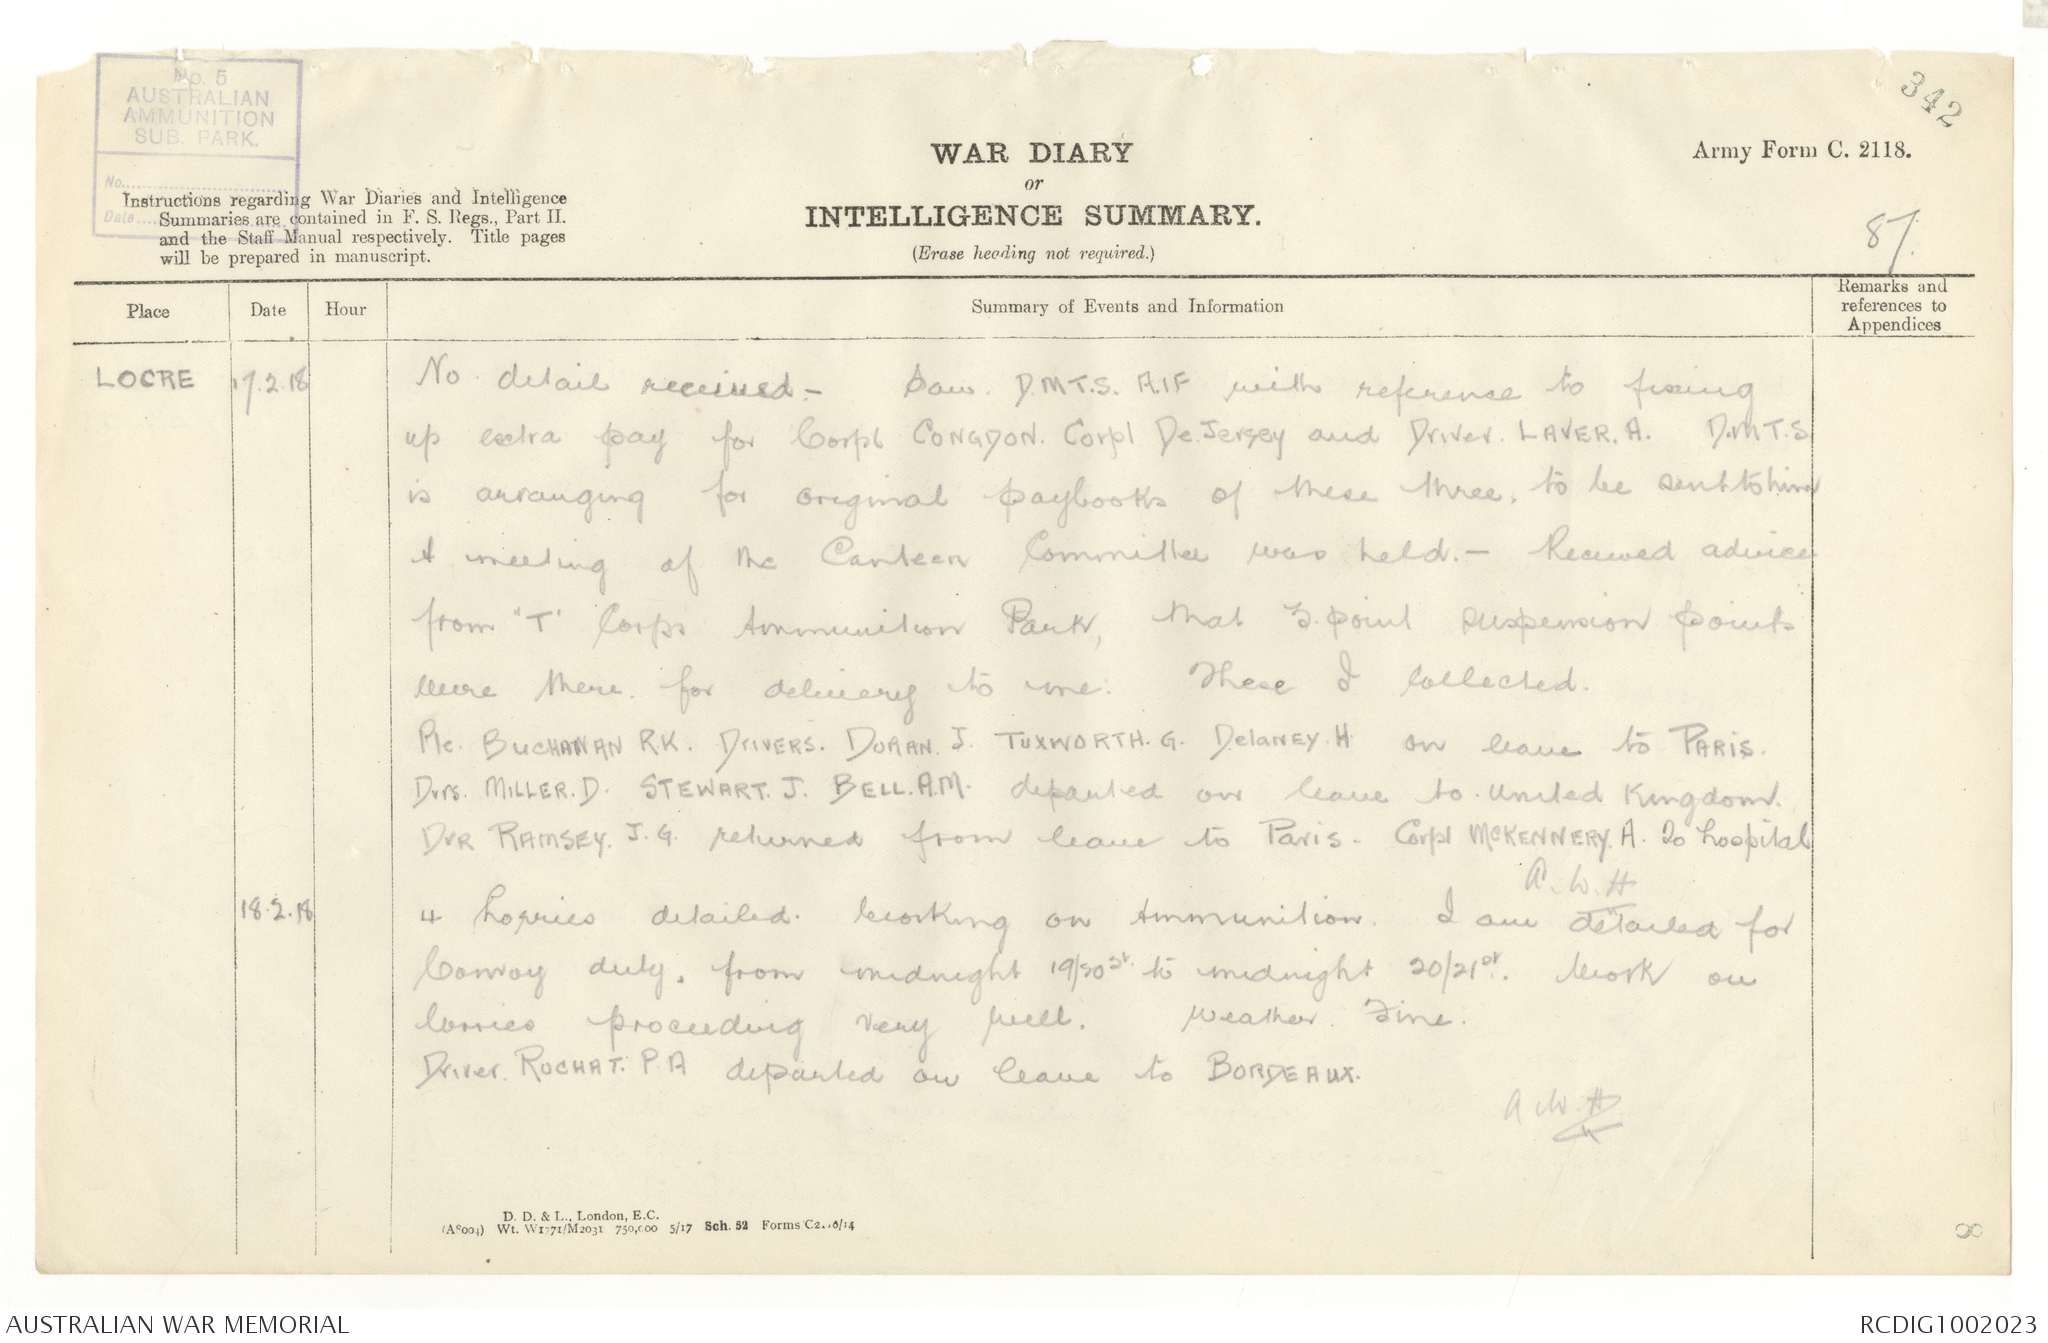 No. 5
AUSTRALIAN
AMMUNITION
SUB. PARK.
No.
Date
342
Army Form C. 2118.
87.
WAR DIARY
or
INTELLIGENCE SUMMARY.
(Erase heading not required.)
Instructions regarding War Diaries and Intelligence
Summaries are contained in F. S. Regs., Part II.
and the Staff Manual respectively. Title pages
will be prepared in manuscript.
Place Date Hour Summary of Events and Information Remarks and references to Appendices
LOCRE 17.2.18 No detail received.- Saw. D.M.T.S. A.I.F with reference to fixing
up extra pay for Corpl CONGDON. Corpl De Jersey and Driver. LAVER. A. D.M.T.S
is arranging for original paybooks of these three, to be sent to him
A meeting of the Canteen Committee was held.- Received advice
from "T" Corps Ammunition Park, that 3. point suspension points
were there. for delivery to me. These I collected.
Pte. BUCHANAN R.K. DRIVERS. DORAN. J. TUXWORTH. G. DeLANEY. H on leave to PARIS.
Dvrs. MILLER. D. STEWART. J. BELL. A.M. departed on leave to United Kingdom.
DVR RAMSEY. J. G. returned from leave to Paris. Corpl McKENNERY. A. To hospital
A.W.H
18.2.18 4 lorries detailed. Working on Ammunition. I am detailed for
Convoy duty, from midnight 19/20st. to midnight 20/21st. Work on
lorries proceeding very well. Weather. Fine.
Driver. ROCHAT. P. A departed on leave to BORDEAUX.
A.W.H
D. D. & L., London, E.C.
(A8004) Wt. W1771/M2031 750,000 5/17 Sch. 52 Forms C2118/14
AUSTRALIAN WAR MEMORIAL
RCDIG1002023